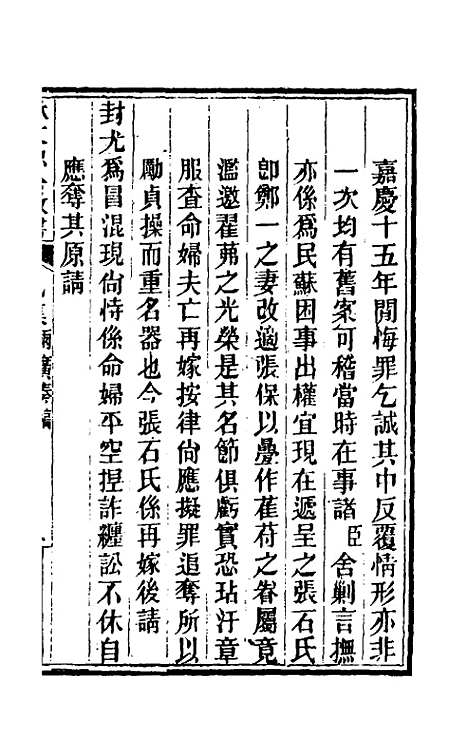 嘉慶十五年閒悔罪乞誠其中反覆情形亦非
一次均有舊案可稽當時在事諸臣舍剿言撫
亦係爲民蘇困事出權宜現在遞呈之張石氏
卽鄭一之妻改適張保以疊作萑苻之眷屬竟
濫邀翟茀之光榮是其名節俱虧實恐玷汙章
服查命婦夫亡再嫁按律尙應擬罪追奪所以
勵貞操而重名器也今張石氏係再嫁後請
封尤爲冒混現尙恃係命婦平空揑詐纏訟不休自
應奪其原請
集兩廣奏稿